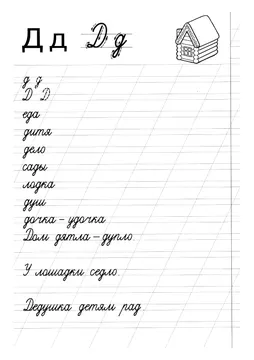 Д д Д д
д д
Д Д
еда
дитя
дело
сады
лодка
душ
дочка – удочка
Дом дятла – дупло.
У лошадки седло.
Дедушка детям рад.